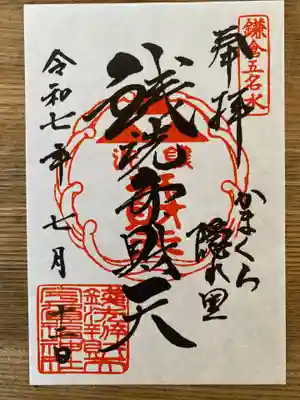 鎌倉五名水
奉拝
かまくら
隠れ里
銭洗弁財天
令和七年 七月
十二日